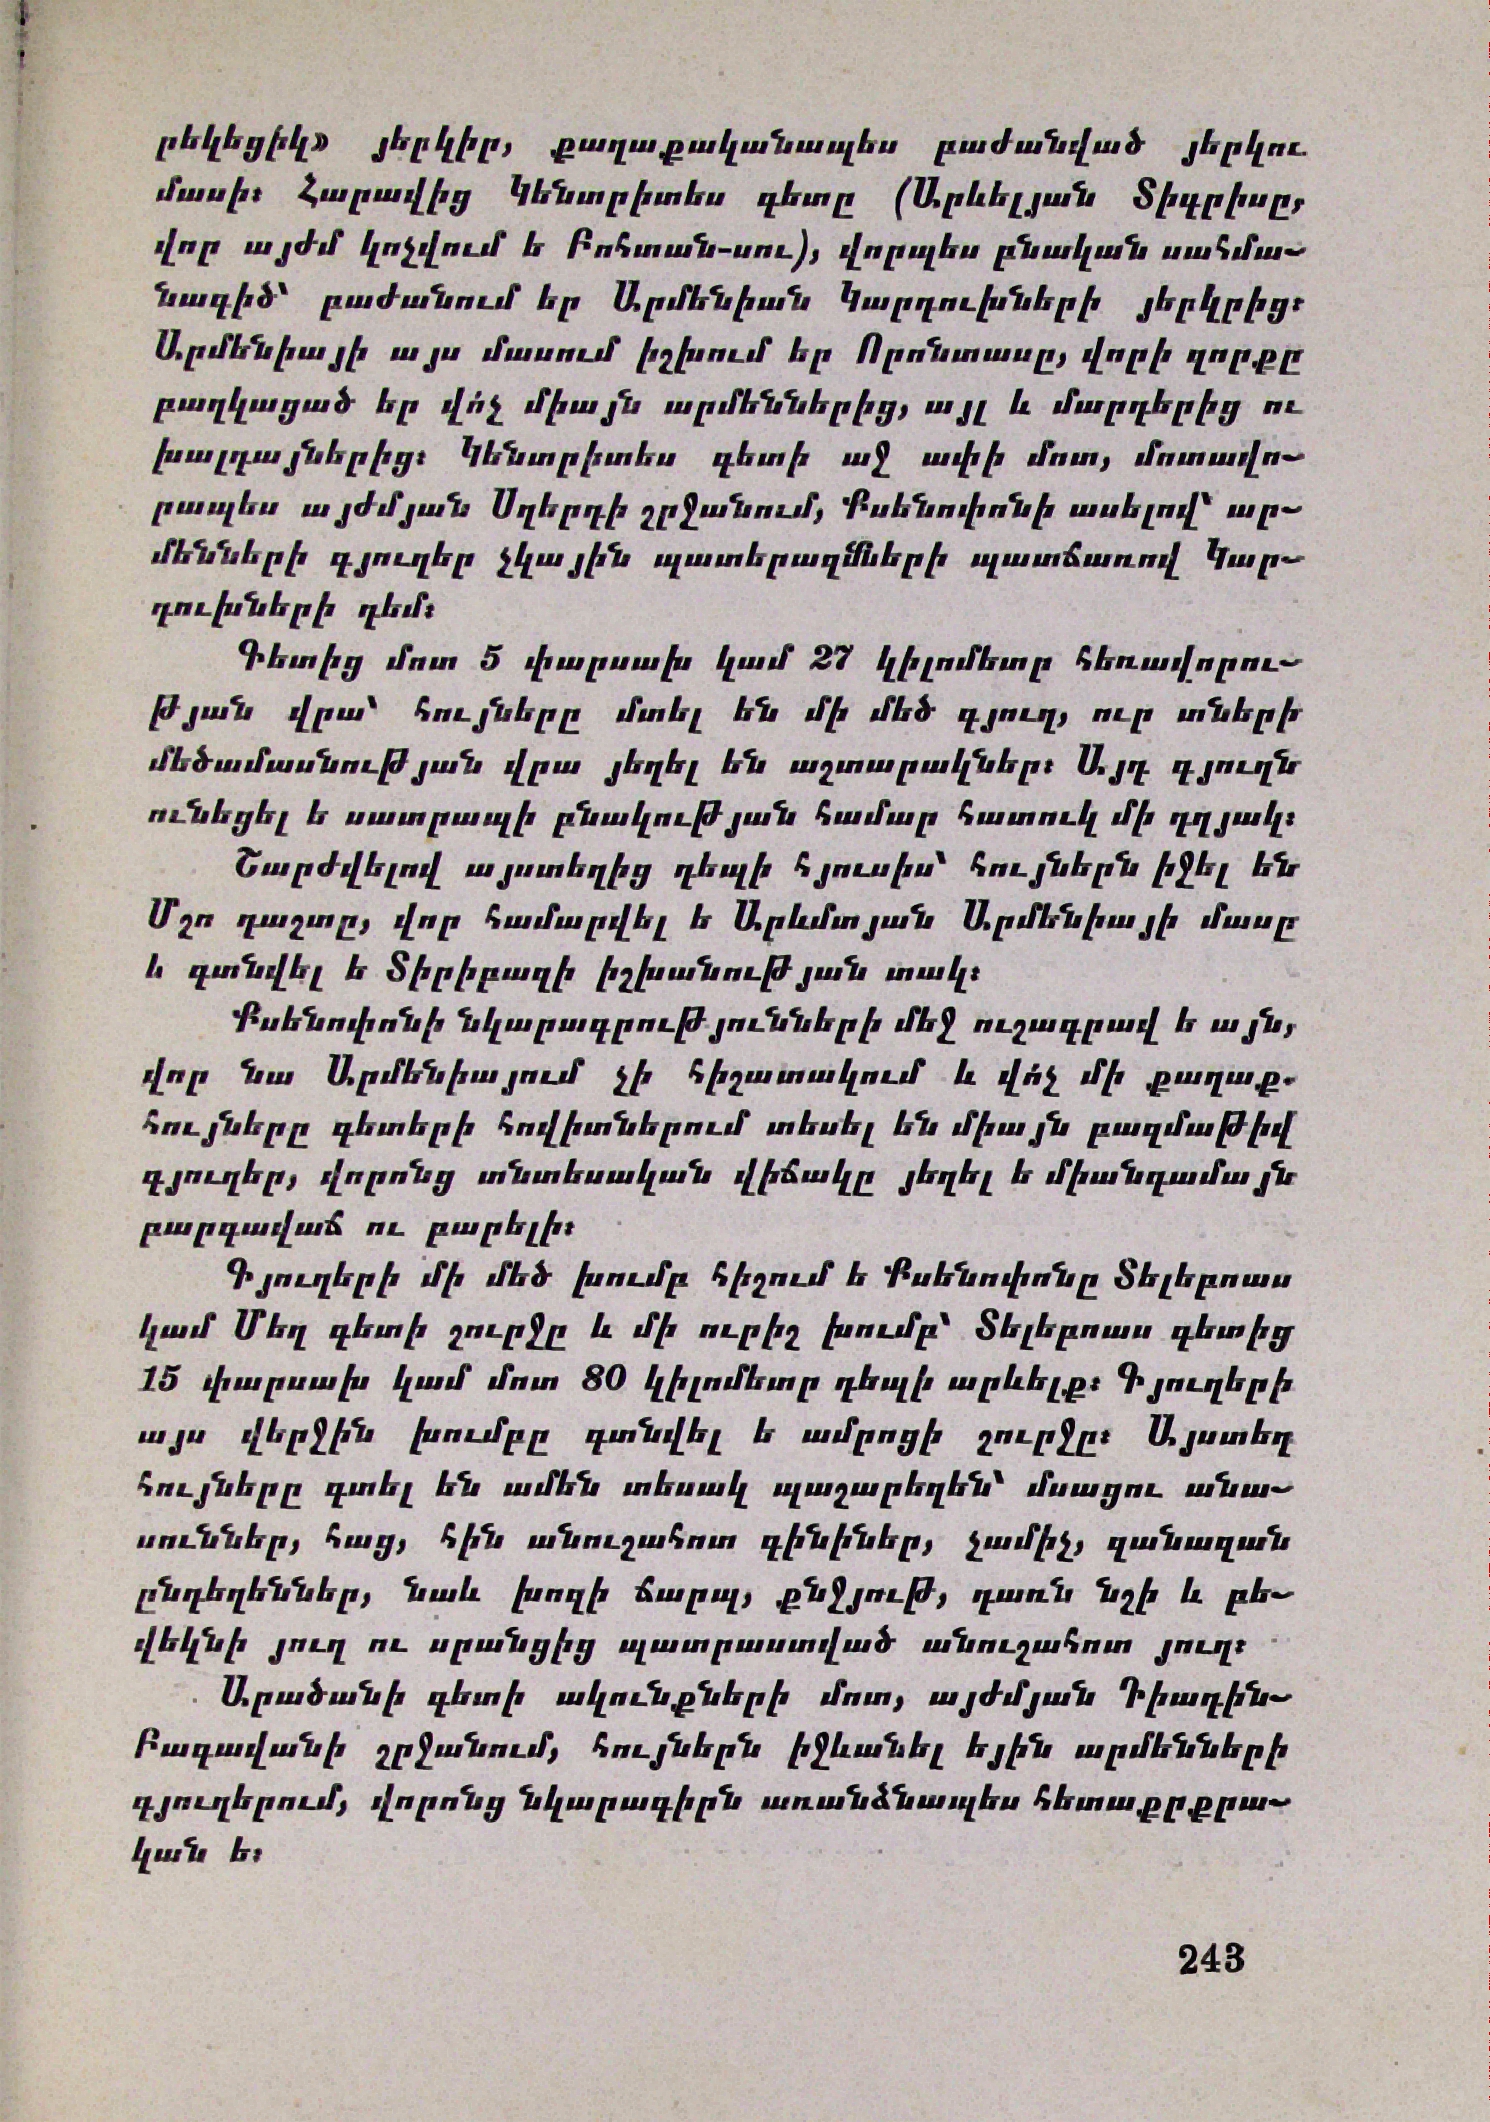 րեկեցիկ» յերկիր, քաղաքականապես բաժանված յերկու
մասի։ Հարավից Կենտրիտես գետը (Արևելյան Տիգրիսը,
վոր այժմ կոչվում ե Բոհտան-սու), վորպես բնական սահմա-
նագիծ՝ բաժանում եր Արմենիան Կարդուխների յերկրից։
Արմենիայի այս մասում իշխում եր Որոնտասը, վորի զորքը
բաղկացած եր վո՛չ միայն արմեններից, այլ և մարդերից ու
խալդայներից։ Կենտրիտես գետի աջ ափի մոտ, մոտավո-
րապես այժմյան Սղերդի շրջանում, Քսենոփոնի ասելով՝ ար-
մենների գյուղեր չկային պատերազմների պատճառով Կար-
դուխների դեմ։
Գետից մոտ 5 փարսախ կամ 27 կիլոմետր հեռավորու-
թյան վրա՝ հույները մտել են մի մեծ գյուղ, ուր տների
մեծամասնության վրա յեղել են աշտարակներ։ Այդ գյուղն
ունեցել ե սատրապի բնակության համար հատուկ մի դղյակ։
Շարժվելով այստեղից դեպի հյուսիս՝ հույներն իջել են
Մշո դաշտը, վոր համարվել ե Արևմտյան Արմենիայի մասը
և գտնվել ե Տիրիբազի իշխանության տակ։
Քսենոփոնի նկարագրությունների մեջ ուշագրավ ե այն,
վոր նա Արմենիայում չի հիշատակում և վո՛չ մի քաղաք.
հույները գետերի հովիտներում տեսել են միայն բազմաթիվ
գյուղեր, վորոնց տնտեսական վիճակը յեղել ե միանգամայն
բարգավաճ ու բարելի։
Գյուղերի մի մեծ խումբ հիշում ե Քսենոփոնը Տելեբոաս
կամ Մեղ գետի շուրջը և մի ուրիշ խումբ՝ Տելեբոաս գետից
15 փարսախ կամ մոտ 80 կիլոմետր դեպի արևելք։ Գյուղերի
այս վերջին խումբը գտնվել ե ամրոցի շուրջը։ Այստեղ
հույները գտել են ամեն տեսակ պաշարեղեն՝ մսացու անա-
սուններ, հաց, հին անուշահոտ գինիներ, չամիչ, զանազան
ընդեղեններ, նաև խոզի ճարպ, քնջյութ, դառն նշի և բե-
վեկնի յուղ ու սրանցից պատրաստված անուշահոտ յուղ։
Արածանի գետի ակունքների մոտ, այժմյան Դիադին-
Բագավանի շրջանում, հույներն իջևանել եյին արմենների
գյուղերում, վորոնց նկարագիրն առանձնապես հետաքրքրա-
կան ե։
243